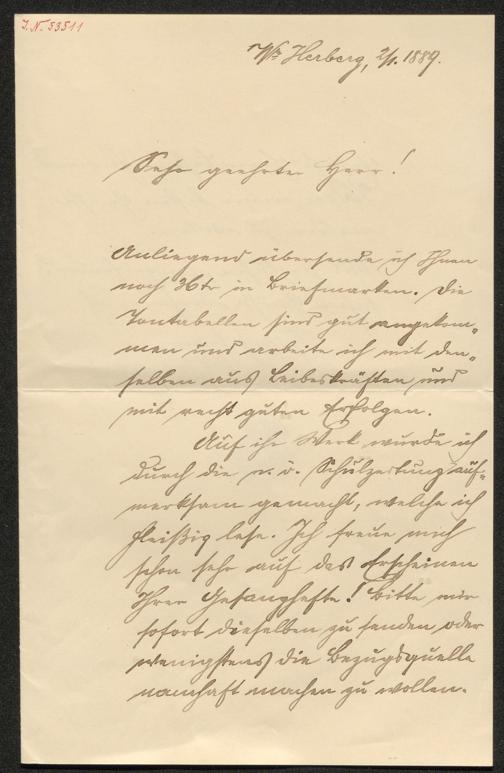 I.N. 53511
Herberg, 2/1. 1889.
Sehr geehrter Herr!
Anliegend übersende ich Ihnen
noch 36 kr in Briefmarken. Die
Tontabellen sind gut angekom-
men und arbeite ich mit den-
selben aus Leibeskräften und
mit recht guten Erfolgen.
Auf ihr Werk wurde ich
durch die n. ö. Schulzeitung auf-
merksam gemacht, welche ich
fleißig lese. Ich freue mich
schon sehr auf das Erscheinen
Ihrer Gesanghefte! Bitte mir
sofort dieselben zu senden oder
wenigstens die Bezugsquelle
namhaft machen zu wollen.